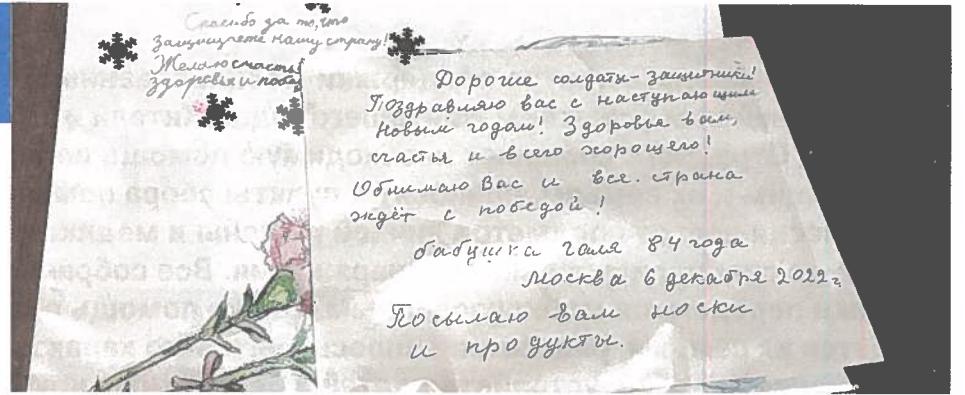 Спасибо за то, что
защищаете нашу страну!
Желаю счастья
здоровья и побед
Дорогие солдаты-защитники!
Поздравляю вас с наступающим
Новым годом! Здоровья вам,
счастья и всего хорошего!
Обнимаю Вас и вся страна
ждёт с победой!
бабушка Галя 84 года
Москва 6 декабря 2022г.
Посылаю вам носки
и продукты.